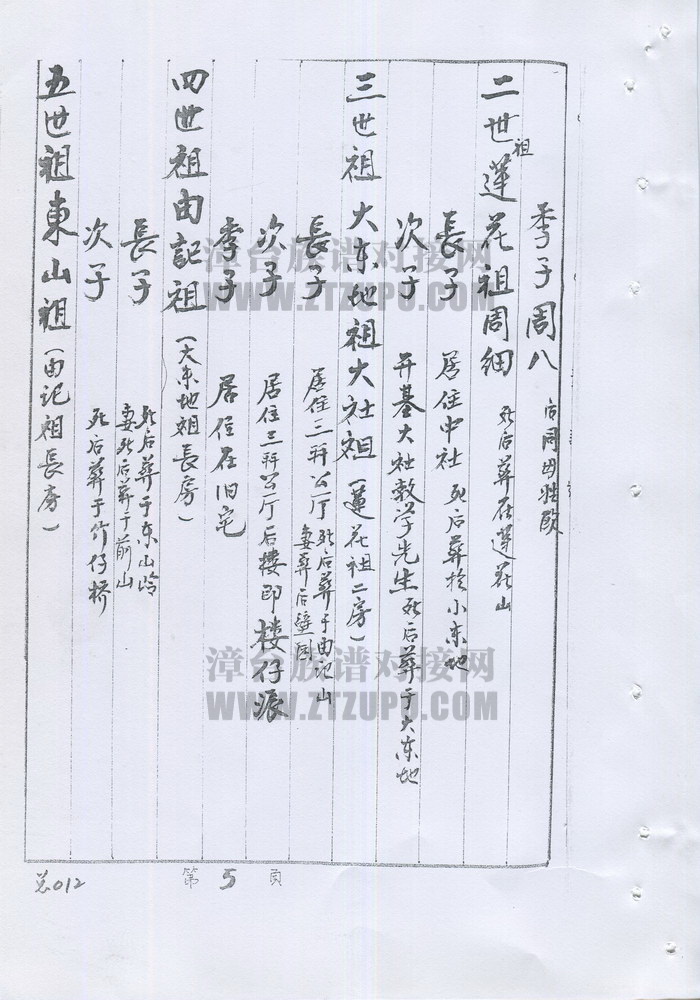 季子周八 同母姓欧
二世祖蓮花祖周细 死后葬在莲花山
長子 居住中社 死后葬於小东地
次子 开基大社教学先生 死后葬于大东地
三世祖大东地祖大社祖(蓮花祖二房)
長子 居住三轩公厅 死后葬于由记山 妻葬后壁园
次子 居住三轩公厅后楼即楼仔派
季子 居住在旧宅
四世祖由記祖(大东地祖長房)
長子 死后葬于东山岭 妻死后葬于前山
次子 死后葬于竹仔桥
五世祖東山祖(由记祖長房)
总012
第5页
漳台族谱对接网
WWW.ZTZUPU.COM
漳台族谱对接网
WWW.ZTZUPU.COM